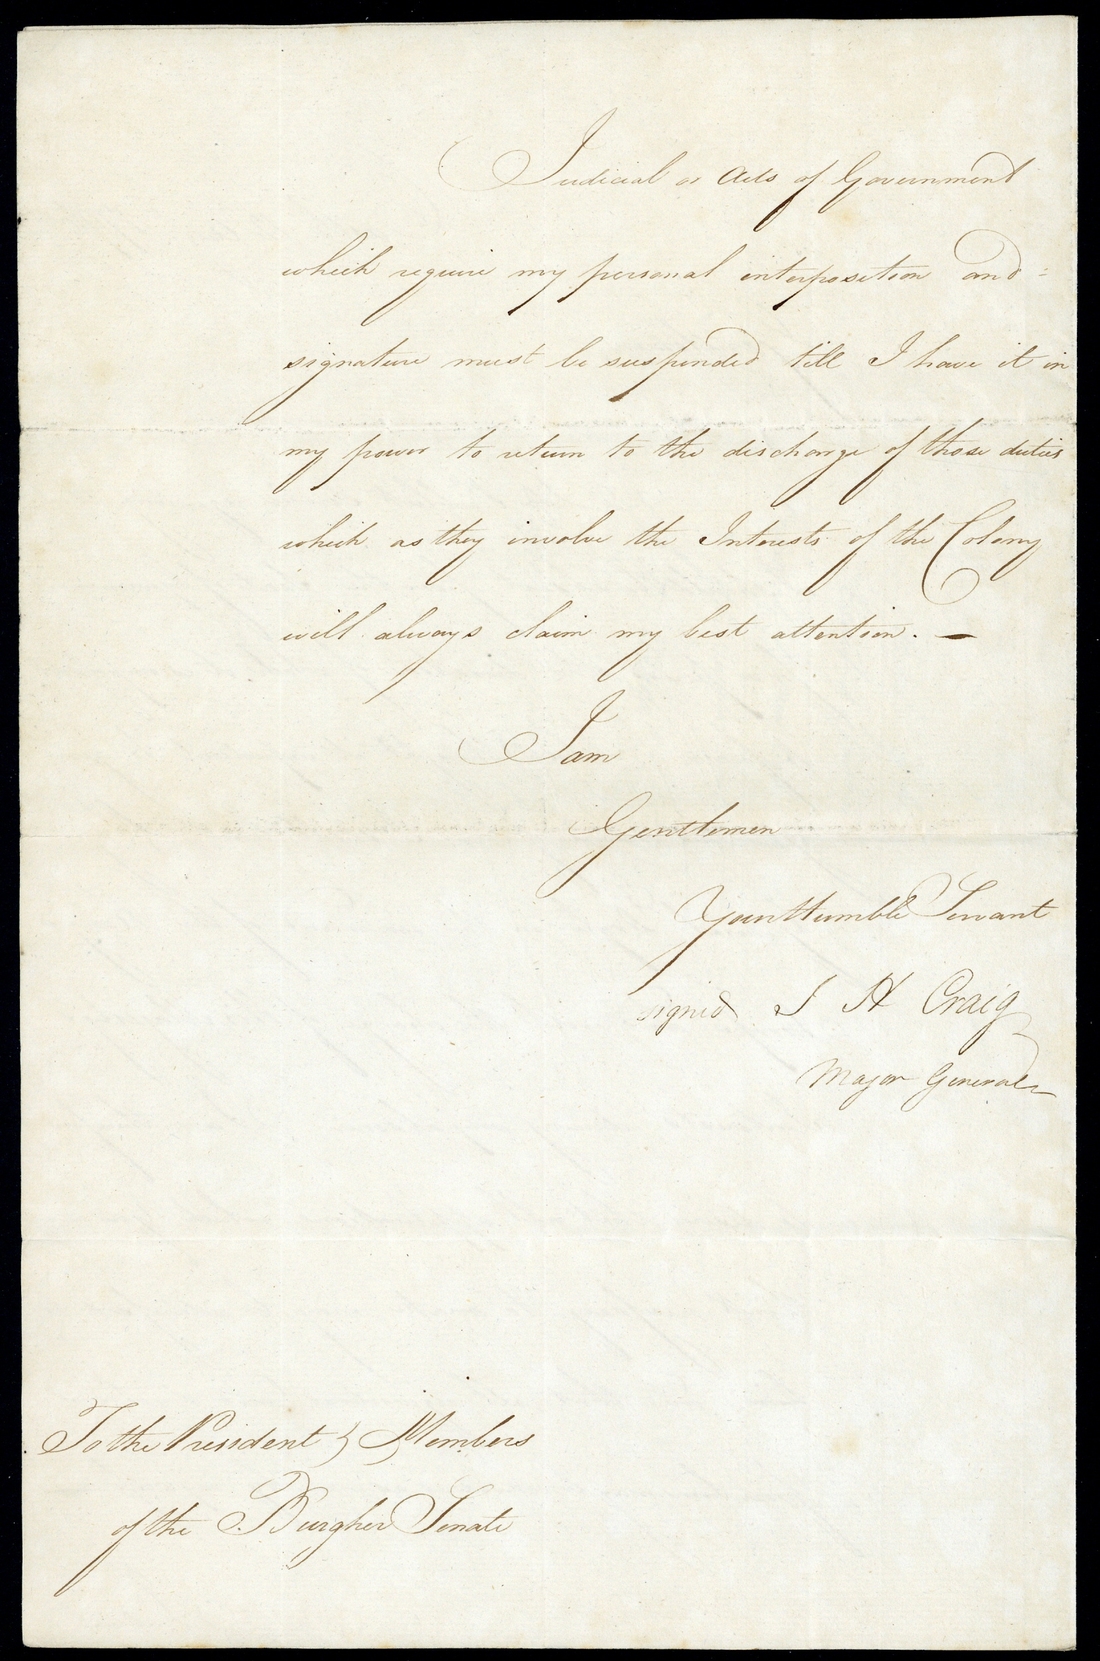 Judicial or Acts of Government
which require my personal interposition and =
signature must be suspended till I have it in
my power to return to the discharge of those duties
which as they involve the Interests of the Colony
will always claim my best attention. —
I am
Gentlemen
Your Humble Servant
signed J H Craig
Major General
To the President & Members
of the Burgher Senate